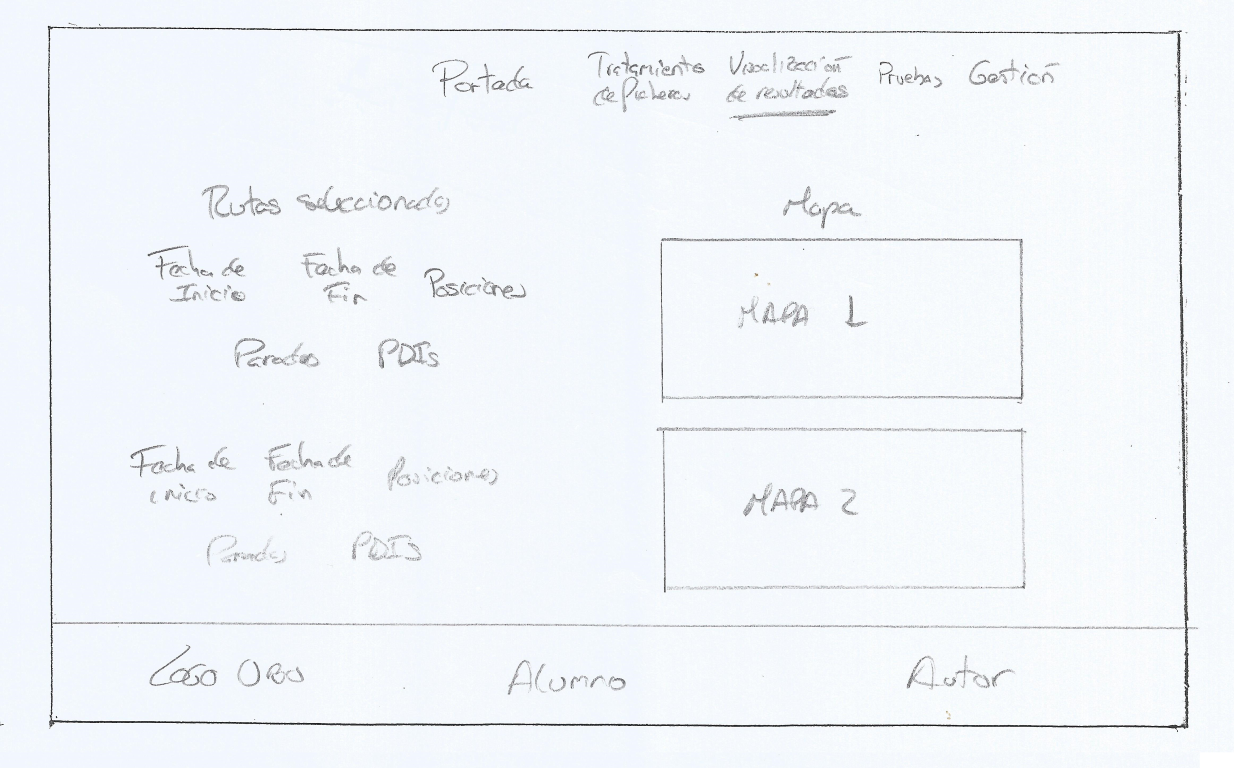 Portada Tratamiento de ficheros Visualización de resultados Pruebas Gestión
Rutas seleccionadas
Mapa
Fecha de Inicio Fecha de Fin Posiciones
Paradas PDIs
MAPA 1
Fecha de inicio Fecha de Fin Posiciones
Paradas PDIs
MAPA 2
Logo UBU Alumno Autor